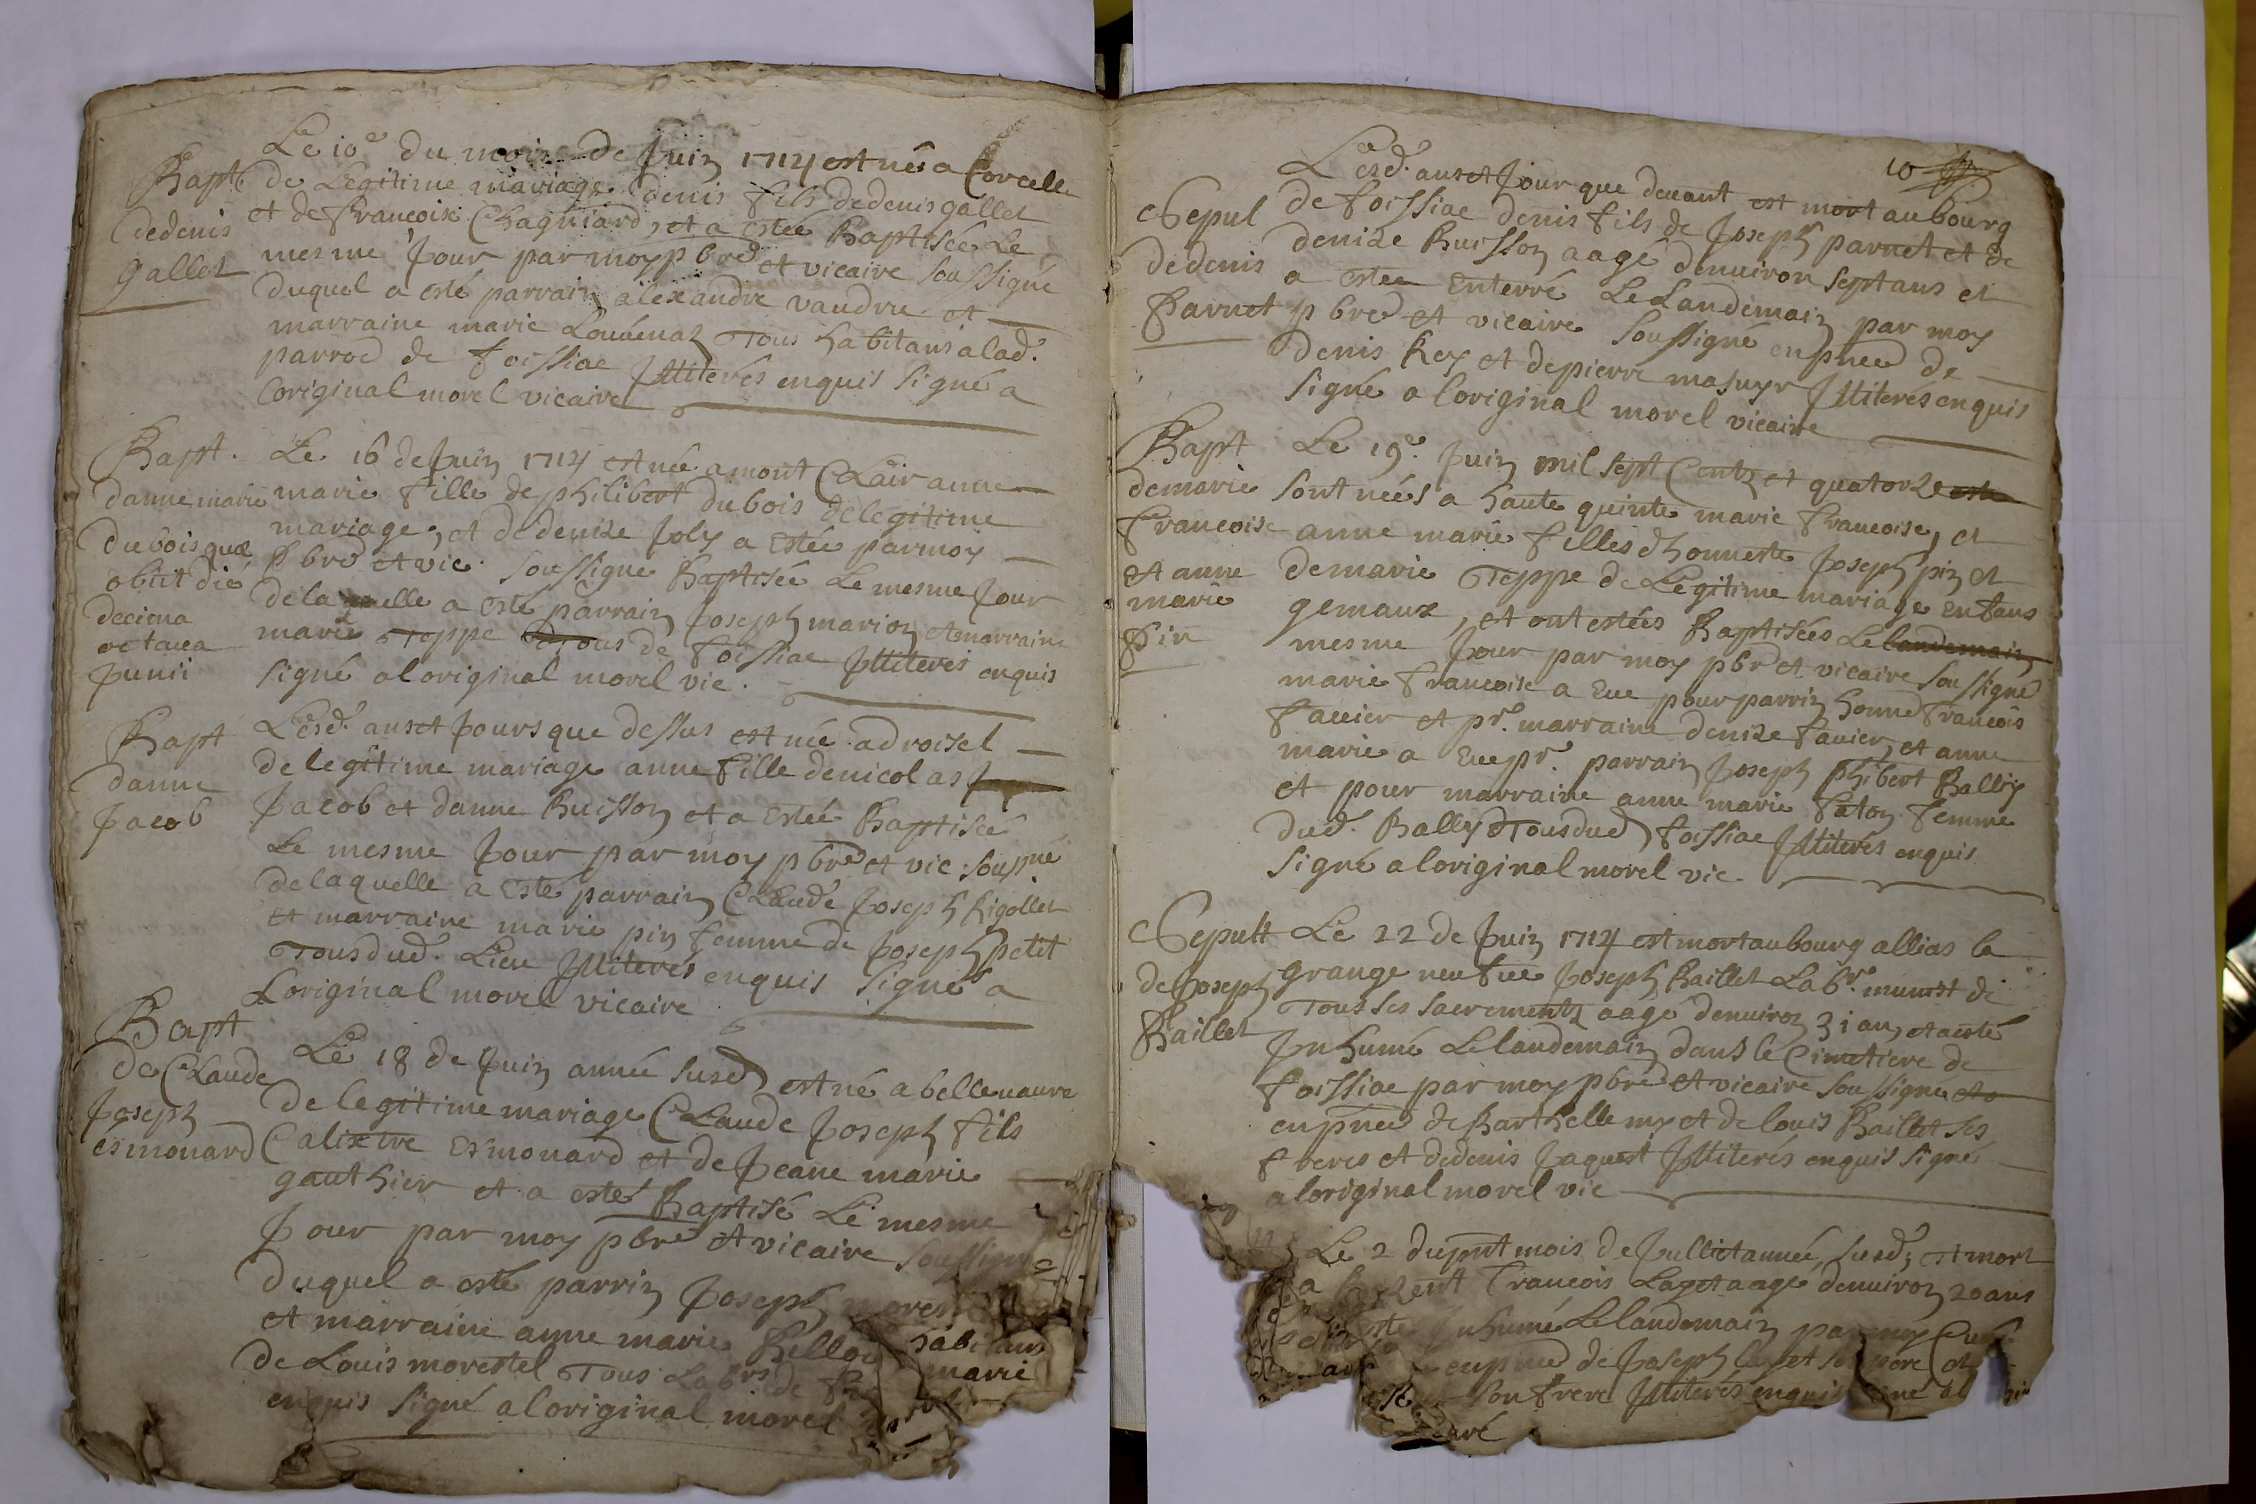 Le 10e du mois de Juin 1714 est nés a Corcelle
Bapt de Legitime mariage denis fils de denis gallet
dedenis et de francoise Chagniard, et a estée Baptisée Le
gallet mesme Jour par moy pbre et vicaire soussigné
duquel a esté parrain alexandre vaudru et
marraine marie Louuenat Tous habitans a lad.
parroe de foissiac Jlliterés enquis signé a
loriginal morel vicaire
Bapt. Le 16 de Juin 1714 est née a mont Clair anne
danne marie marie fille de philibert dubois de legitime
mariage, et de denize Joly a estée par moy
dubois quæ pbre et vic. soussigné Baptisée Le mesme Jour
obiit die de laquelle a esté parrain Joseph marion et marraine
decima marie Teppe Tous de foissiac Jlliterés enquis
octaua signé a loriginal morel vic.
Junii
Bapt Lesd. ans et Jours que dessus est née a droisel
danne de legitime mariage anne fille de nicolas
Jacob Jacob et danne Buisson et a estée Baptisée
Le mesme Jour par moy pbre et vic. sousné
de laquelle a esté parrain Claude Joseph Rigollet
et marraine marie pin femme de Joseph petit
Tous dud. Lieu Jlliterés enquis signé a
Loriginal morel vicaire
Bapt
de Claude Le 18 de Juin année susd est né a bellenauve
Joseph de legitime mariage Claude Joseph fils
esmonard Calixtre Esmonard et de Jeane marie
gauthier et a esté Baptisé Le mesme
Jour par moy pbre et vicaire soussigné
duquel a esté parrin Joseph
et marraine anne marie habitans
de Louis morestel Tous Labrs de marie
enquis signé a loriginal morel
10
Lesd. ans et Jour que deuant est mort au bourg
Sepul de foissiac denis fils de Joseph parnet et de
dedenis denize Buisson aagé denuiron sept ans et
a estée Enterré Le Landemain par moy
Parnet pbre et vicaire soussigné en pnce de
denis Rey et de pierre masuyr Jlliterés enquis
signé a loriginal morel vicaire
Bapt Le 19e. Juin mil sept Centz et quatorze
demarie sont néés a haute quinte marie francoise, et
francoise anne marie filles dhonneste Joseph pin et
et anne de marie Teppe de Legitime mariage enfans
marie gemaux, et ont estées Baptisées Le landemain
Pin mesme Jour par moy pbr et vicaire soussigné
marie francoise a Eue pour parrin honne francois
fauier et pr. marraine denize fauier, et anne
marie a Eue pr. parrain Joseph phibert Bally
et pour marraine anne marie faton femme
dud. Bally Tous dud foissiac Jlliterés enquis
signé a loriginal morel vic.
Sepult Le 22 de Juin 1714 est mort au bourg allias la
de Joseph grange neufue Joseph Baillet Labr. munist de
Baillet Tous ses sacrementz aagé denuiron 31 an, et a esté
Jnhumé Le landemain dans le Cimetiere de
foissiac par moy pbre et vicaire soussigné
en pnce de Barthellemy et de louis Baillet ses
freres et de denis Jaquet Jlliterés enquis signé
a loriginal morel vic
Le 2 du pnt mois de Jullict année susd, est mort
a francois Layet aagé denuiron 20 ans
Jnhumé Le landemain par moy Curé
en pnce de Joseph Layet son pere
son frere Jlliterés enquis